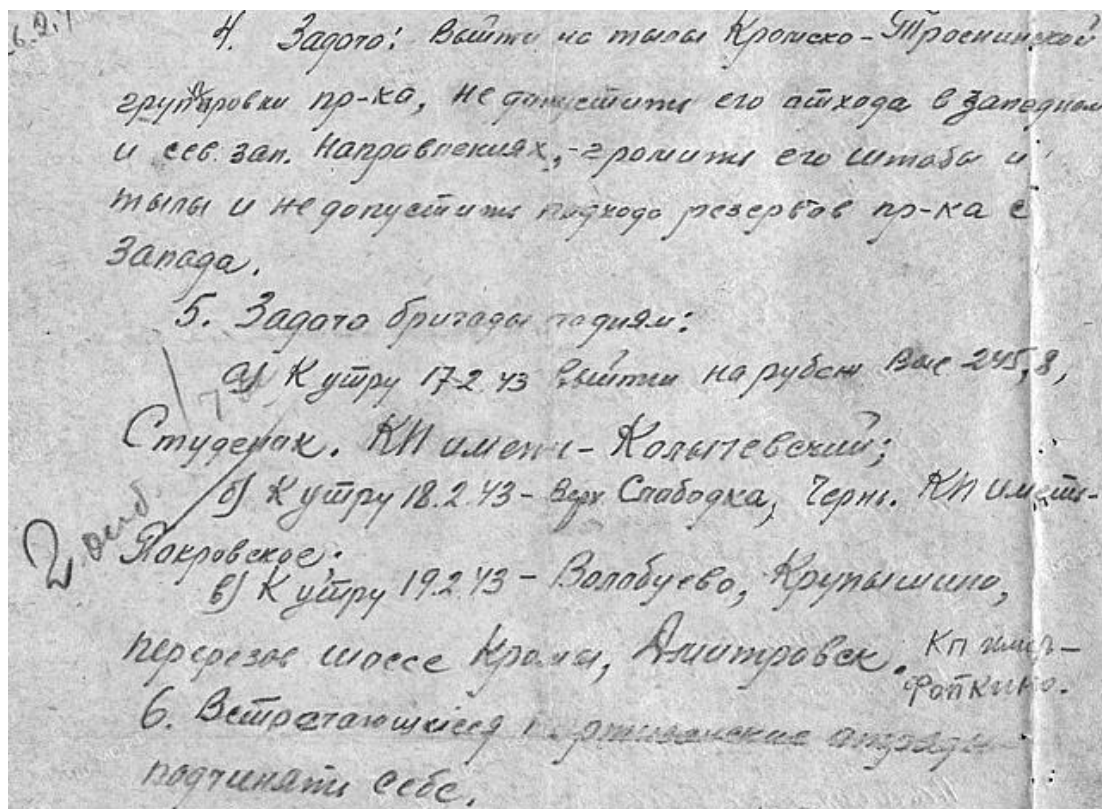 4. Задача: Выйти на тылы Кромско-Троснинской
группировки пр-ка, не допустить его отхода в западном
и сев. зап. направлениях, - громить его штабы и
тылы и не допустить подхода резервов пр-ка с
Запада.
5. Задача бригады по дням:
а) К утру 17.2.43 выйти на рубеж Выс 245,8,
Студенок. КП иметь - Колычевский;
б) К утру 18.2.43 - Верх Слободка, Чернь. КП иметь -
Покровское;
в) К утру 19.2.43 - Волобуево, Крупышино,
перерезав шоссе Кромы, Дмитровск. КП иметь -
Фоткино.
6. Встречающиеся партизанские отряды
подчинять себе.